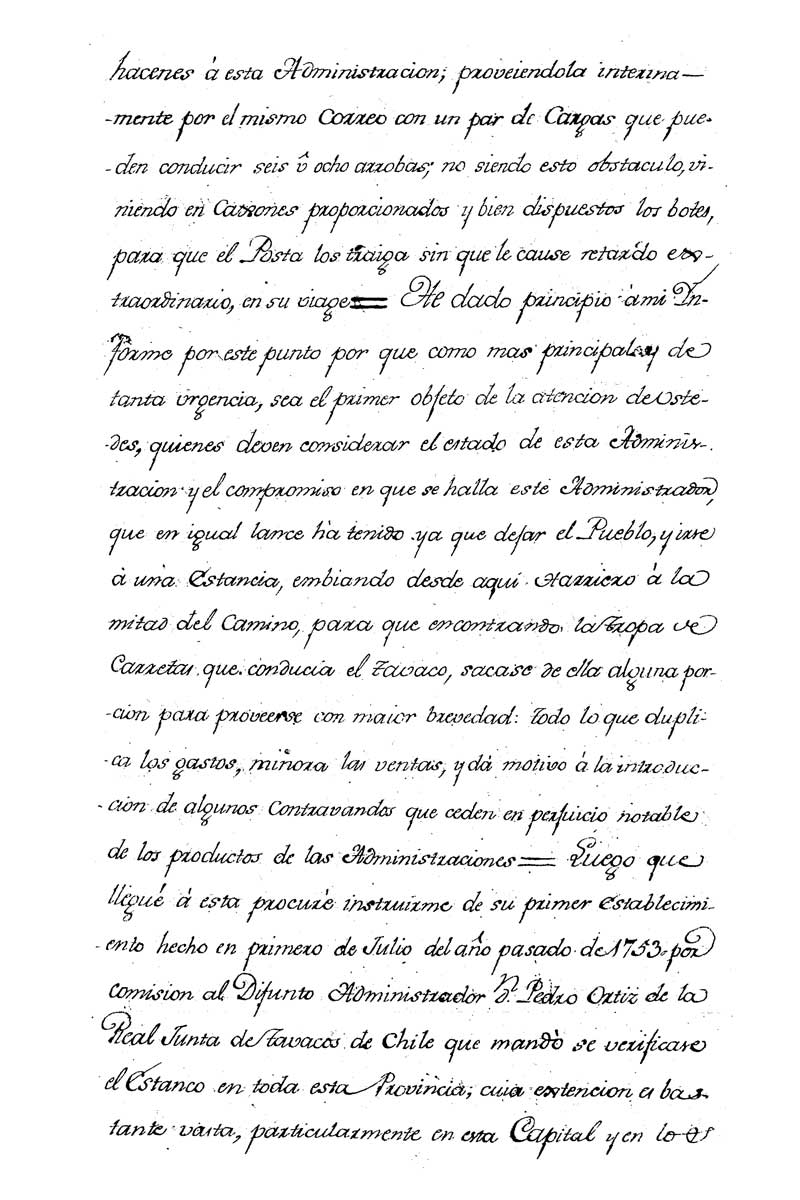 hacenes à esta Administracion; proveiendola interina—
-mente por el mismo Correo con un par de Cargas que pue-
-den conducir seis û ocho arrobas; no siendo esto obstaculo, vi-
niendo en Caxones proporcionados y bien dispuestos los botes,
para que el Posta los traiga sin que le cause retardo ex-
traordinario, en su viage = He dado principio à mi In-
forme por este punto por que como mas principal y de
tanta urgencia, sea el primer objeto de la atencion de Uste-
-des, quienes deven considerar el estado de esta Adminis-
tracion y el compromiso en que se halla este Administrador,
que en igual lance ha tenido ya que dejar el Pueblo, y irse
à una Estancia, embiando desde aqui Harriero à la
mitad del Camino, para que encontrando la Tropa de
Carretas que conducia el Tavaco, sacase de ella alguna por-
-cion para proveerse con maior brevedad: Todo lo que dupli-
-ca los gastos, minora las ventas, y dà motivo à la introduc-
-cion de algunos Contravandos que ceden en perjuicio notable
de los productos de las Administraciones = Luego que
lleguè à esta procurè instruirme de su primer Establecimi-
-ento hecho en primero de Julio del año pasado de 1753 por
comision al Difunto Administrador Dn. Pedro Ortiz de la
Real Junta de Tavacos de Chile que mandò se verificase
el Estanco en toda esta Provincia; cuia extencion es bas-
tante vasta, particularmente en esta Capital y en lo es